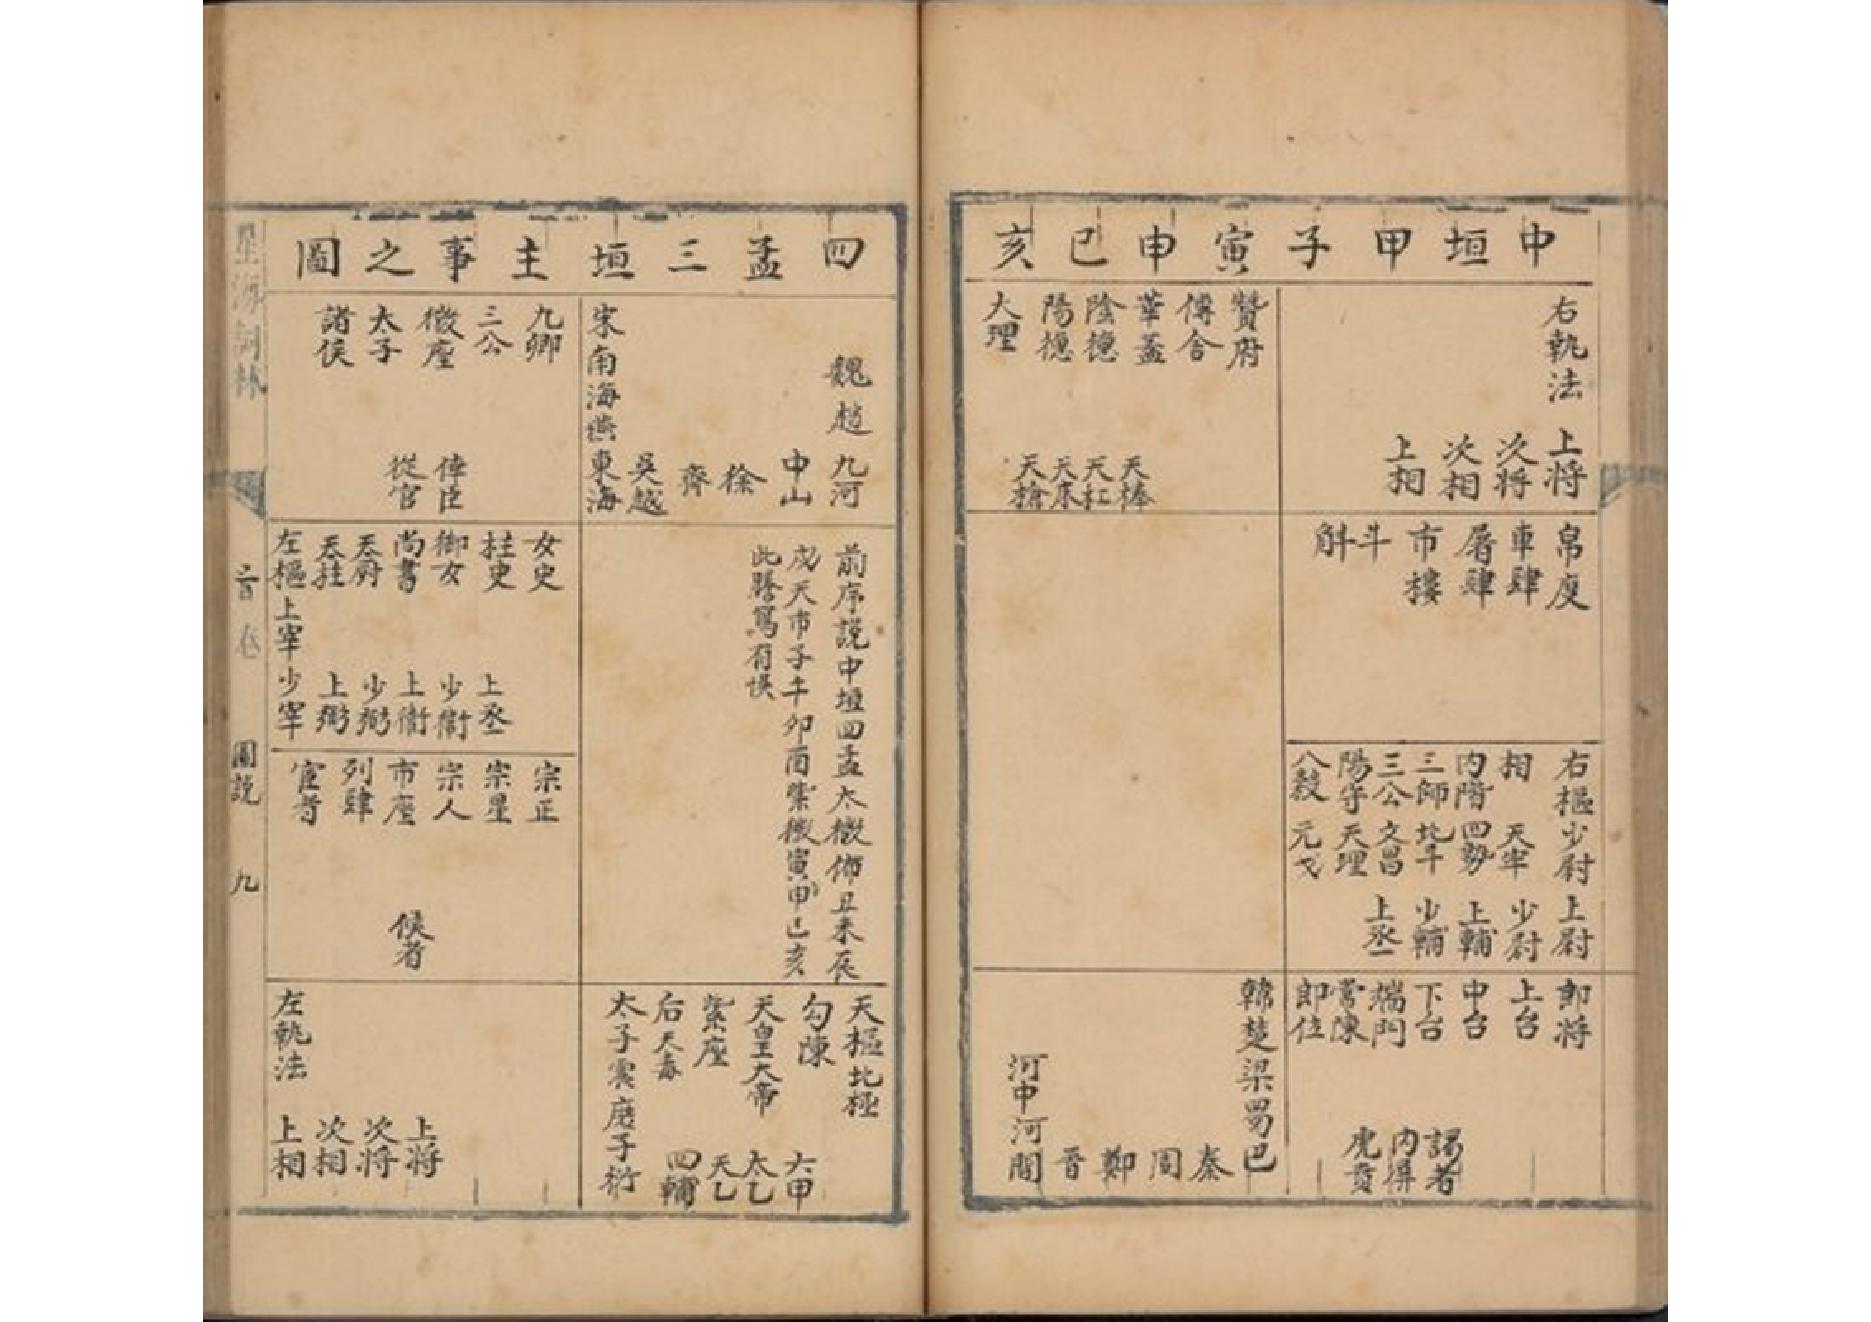 中垣甲子寅申巳亥
右執法
上将
次将
次相
上相
帛度
車肆
屠肆
市樓
斗
斛
右樞少尉上尉
相 天牢 少尉
内階四勢上輔
三師北斗少輔
三公文昌上丞
陽守天理
八穀元戈
郎将
上台
中台
下台
端門
常陳
郎位
謁者
内屏
虎賁
贊府
傳舍
華蓋
陰德
陽德
大理
天棒
天杠
天床
天槍
韓楚梁蜀巴
秦
周
鄭
晉
河中河間
四孟三垣主事之圖
魏趙九河
中山
徐
齊
吳越
宋南海燕東海
前序說中垣四孟太微佈丑未辰
戌天市子午卯酉紫微寅申巳亥
此謄寫有悞
天樞北極
勾陳
天皇大帝
紫座
后
太子
庶子
六甲
太乙
天乙
四輔
九卿
三公
微座
太子
諸侯
倖臣
從官
女史
柱史
御女
尚書
天厨
天柱
左樞上宰少宰
上丞
少衛
上衛
少弼
上弼
宗正
宗星
宗人
市座
列肆
宦者
候者
左執法
上将
次将
次相
上相
星海詞林
首卷
圖説
九